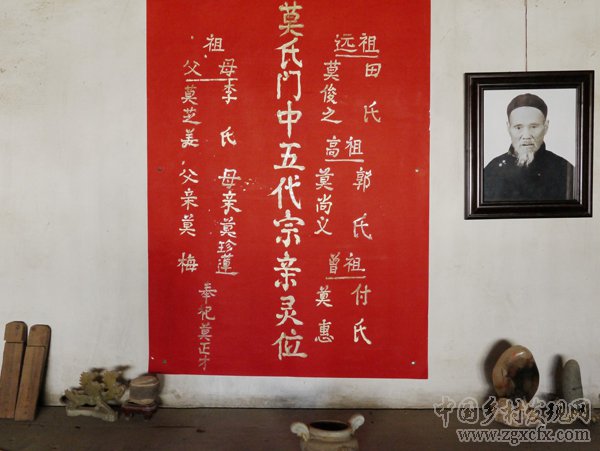 远祖
田氏
莫俊之
高祖
郭氏
莫尚义
曾祖
付氏
莫惠
莫氏门中五代宗亲灵位
祖
母李氏
父莫芝美
母亲莫珍莲
父亲莫梅
奉祀莫正才
中国乡村发现网
www.zgxcfx.com